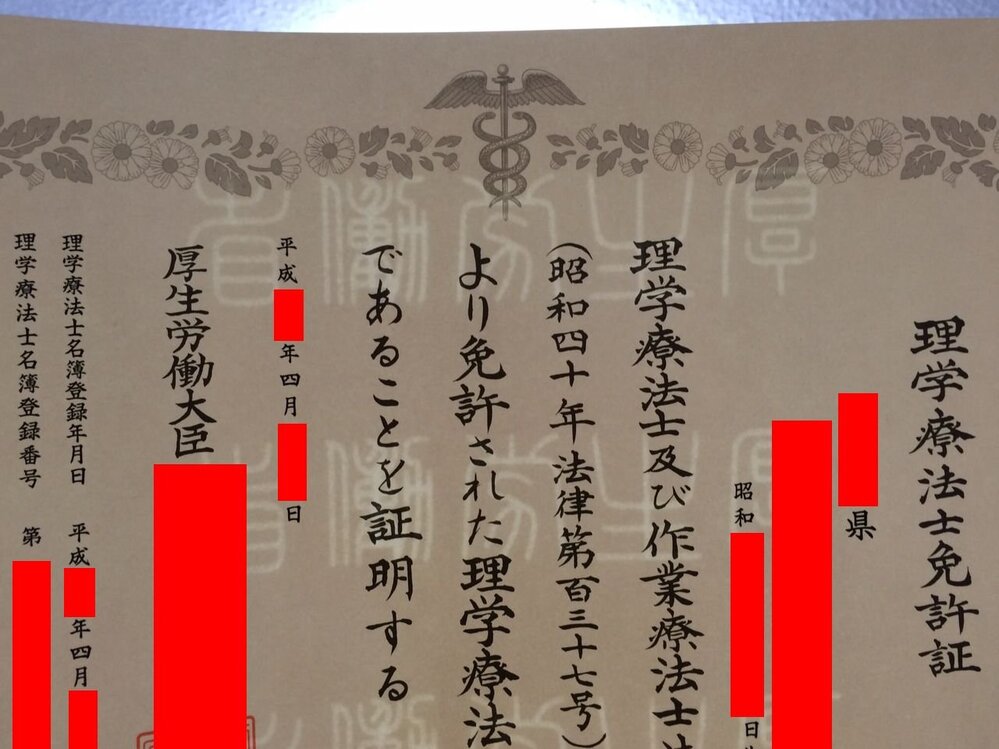 理学療法士免許証
県
昭和
日
理学療法士及び作業療法士法
(昭和四十年法律第百三十七号)
より免許された理学療法
であることを証明する
平成 年四月 日
厚生労働大臣
理学療法士名簿登録年月日 平成 年四月
理学療法士名簿登録番号 第
厚生労働省
厚生労働省